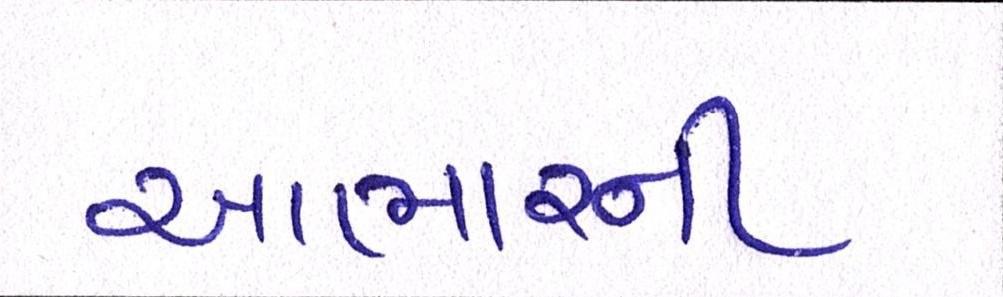 આભારની